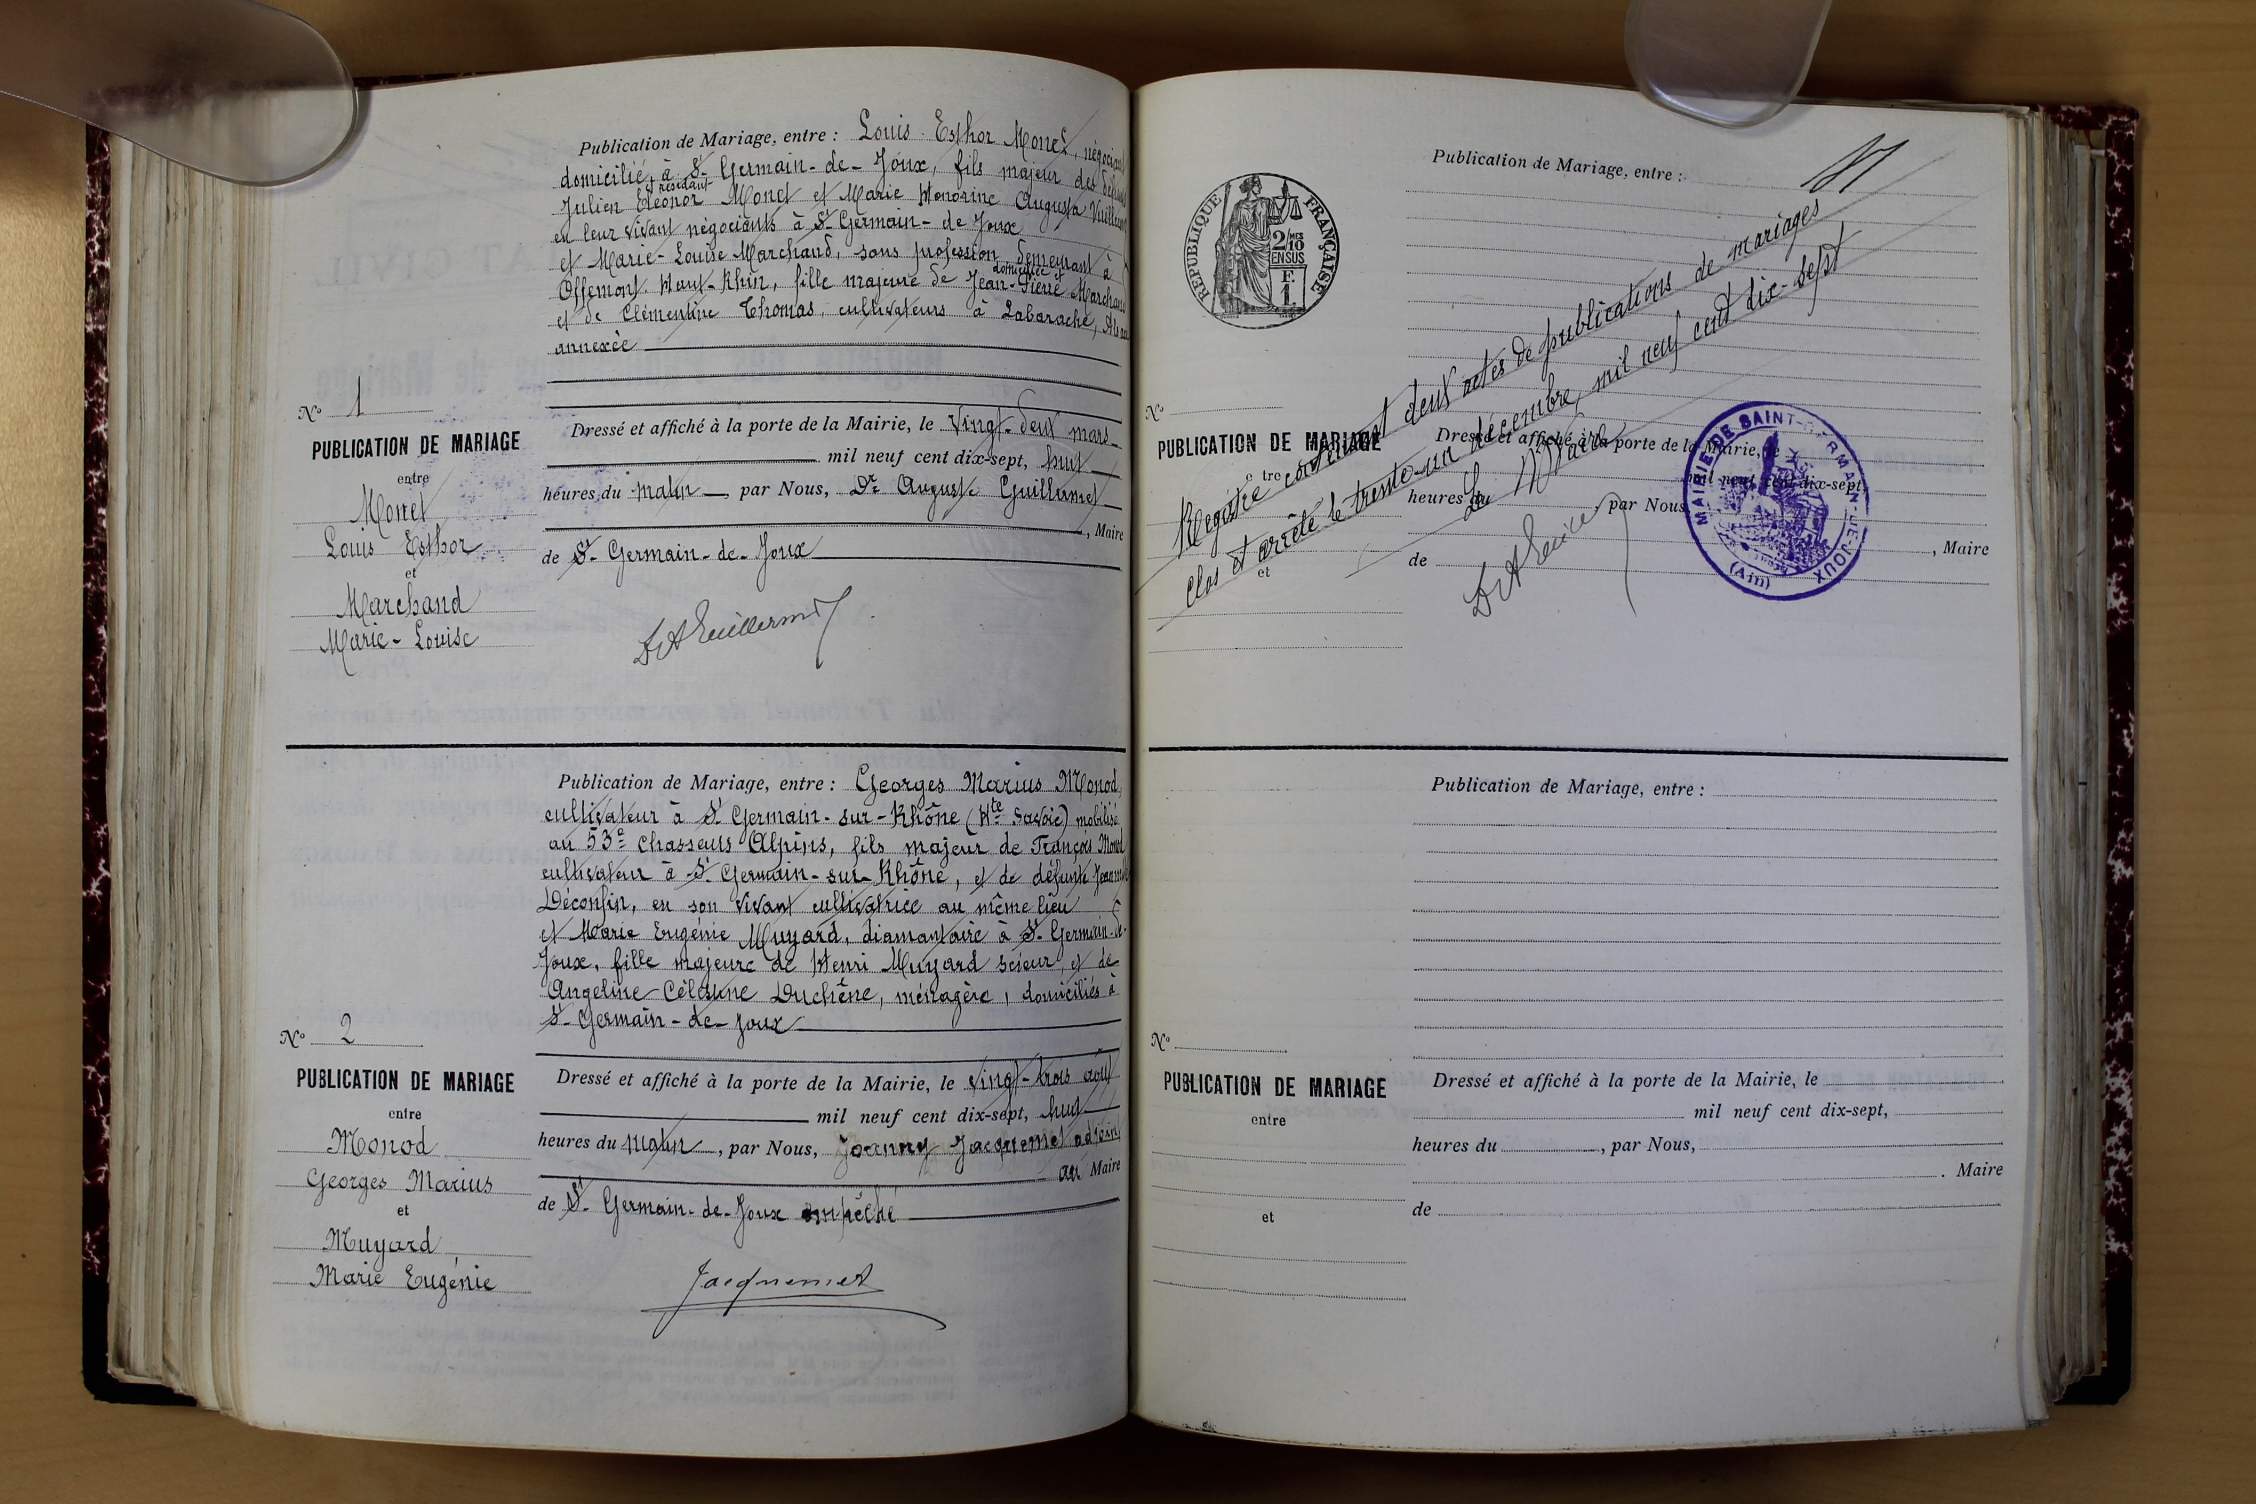 Publication de Mariage, entre : Louis Esthor Monet, négociant
domicilié à St Germain-de-Joux, fils majeur des
et résidant
Julien Eléonor Monet et Marie Honorine Augusta
en leur vivant négociants à St Germain-de Joux
et Marie-Louise Marchand, sans profession demeurant à
domiciliée et
Offemont Haut-Rhin, fille majeure de Jean-Pierre Marchand
et de Clémentine Thomas, cultivateurs à Labaroche,
annexée
No 1
PUBLICATION DE MARIAGE
entre
Monet
Louis Esthor
et
Marchand
Marie-Louise
Dressé et affiché à la porte de la Mairie, le Vingt-deux mars
mil neuf cent dix-sept, huit
heures du matin, par Nous, Dr Auguste Guillermet
, Maire
de St Germain-de-Joux
Dr A Guillermet
Publication de Mariage, entre : Georges Marius Monod,
cultivateur à St Germain-sur-Rhône (Hte Savoie) mobilisé
au 53e Chasseurs Alpins, fils majeur de François Monod
cultivateur à St Germain-sur-Rhône, et de défunte
Déconfin, en son vivant cultivatrice au même lieu
et Marie Eugénie Muyard, diamantaire à St Germain-de-
Joux, fille majeure de Henri Muyard scieur, et de
Angeline Célestine Duchêne, ménagère, domiciliés à
St Germain-de-Joux
No 2
PUBLICATION DE MARIAGE
entre
Monod
Georges Marius
et
Muyard
Marie Eugénie
Dressé et affiché à la porte de la Mairie, le vingt-trois août
mil neuf cent dix-sept, huit
heures du matin, par Nous, Joanny Jacquemet adjoint
au Maire
de St Germain-de-Joux empêché
Jacquemet
RÉPUBLIQUE FRANÇAISE
2/MES
10
EN SUS
F.
1.
Publication de Mariage, entre :
Registre contenant deux actes de publications de mariages
clos et arrêté le trente-un décembre, mil neuf cent dix-sept
Le Maire
Dr A Guillermet
No
PUBLICATION DE MARIAGE
entre
et
Dressé et affiché à la porte de la Mairie, le
mil neuf cent dix-sept,
heures du par Nous
, Maire
de
MAIRIE DE SAINT-GERMAIN-DE-JOUX
(Ain)
Publication de Mariage, entre :
No
PUBLICATION DE MARIAGE
entre
et
Dressé et affiché à la porte de la Mairie, le
mil neuf cent dix-sept,
heures du , par Nous,
. Maire
de